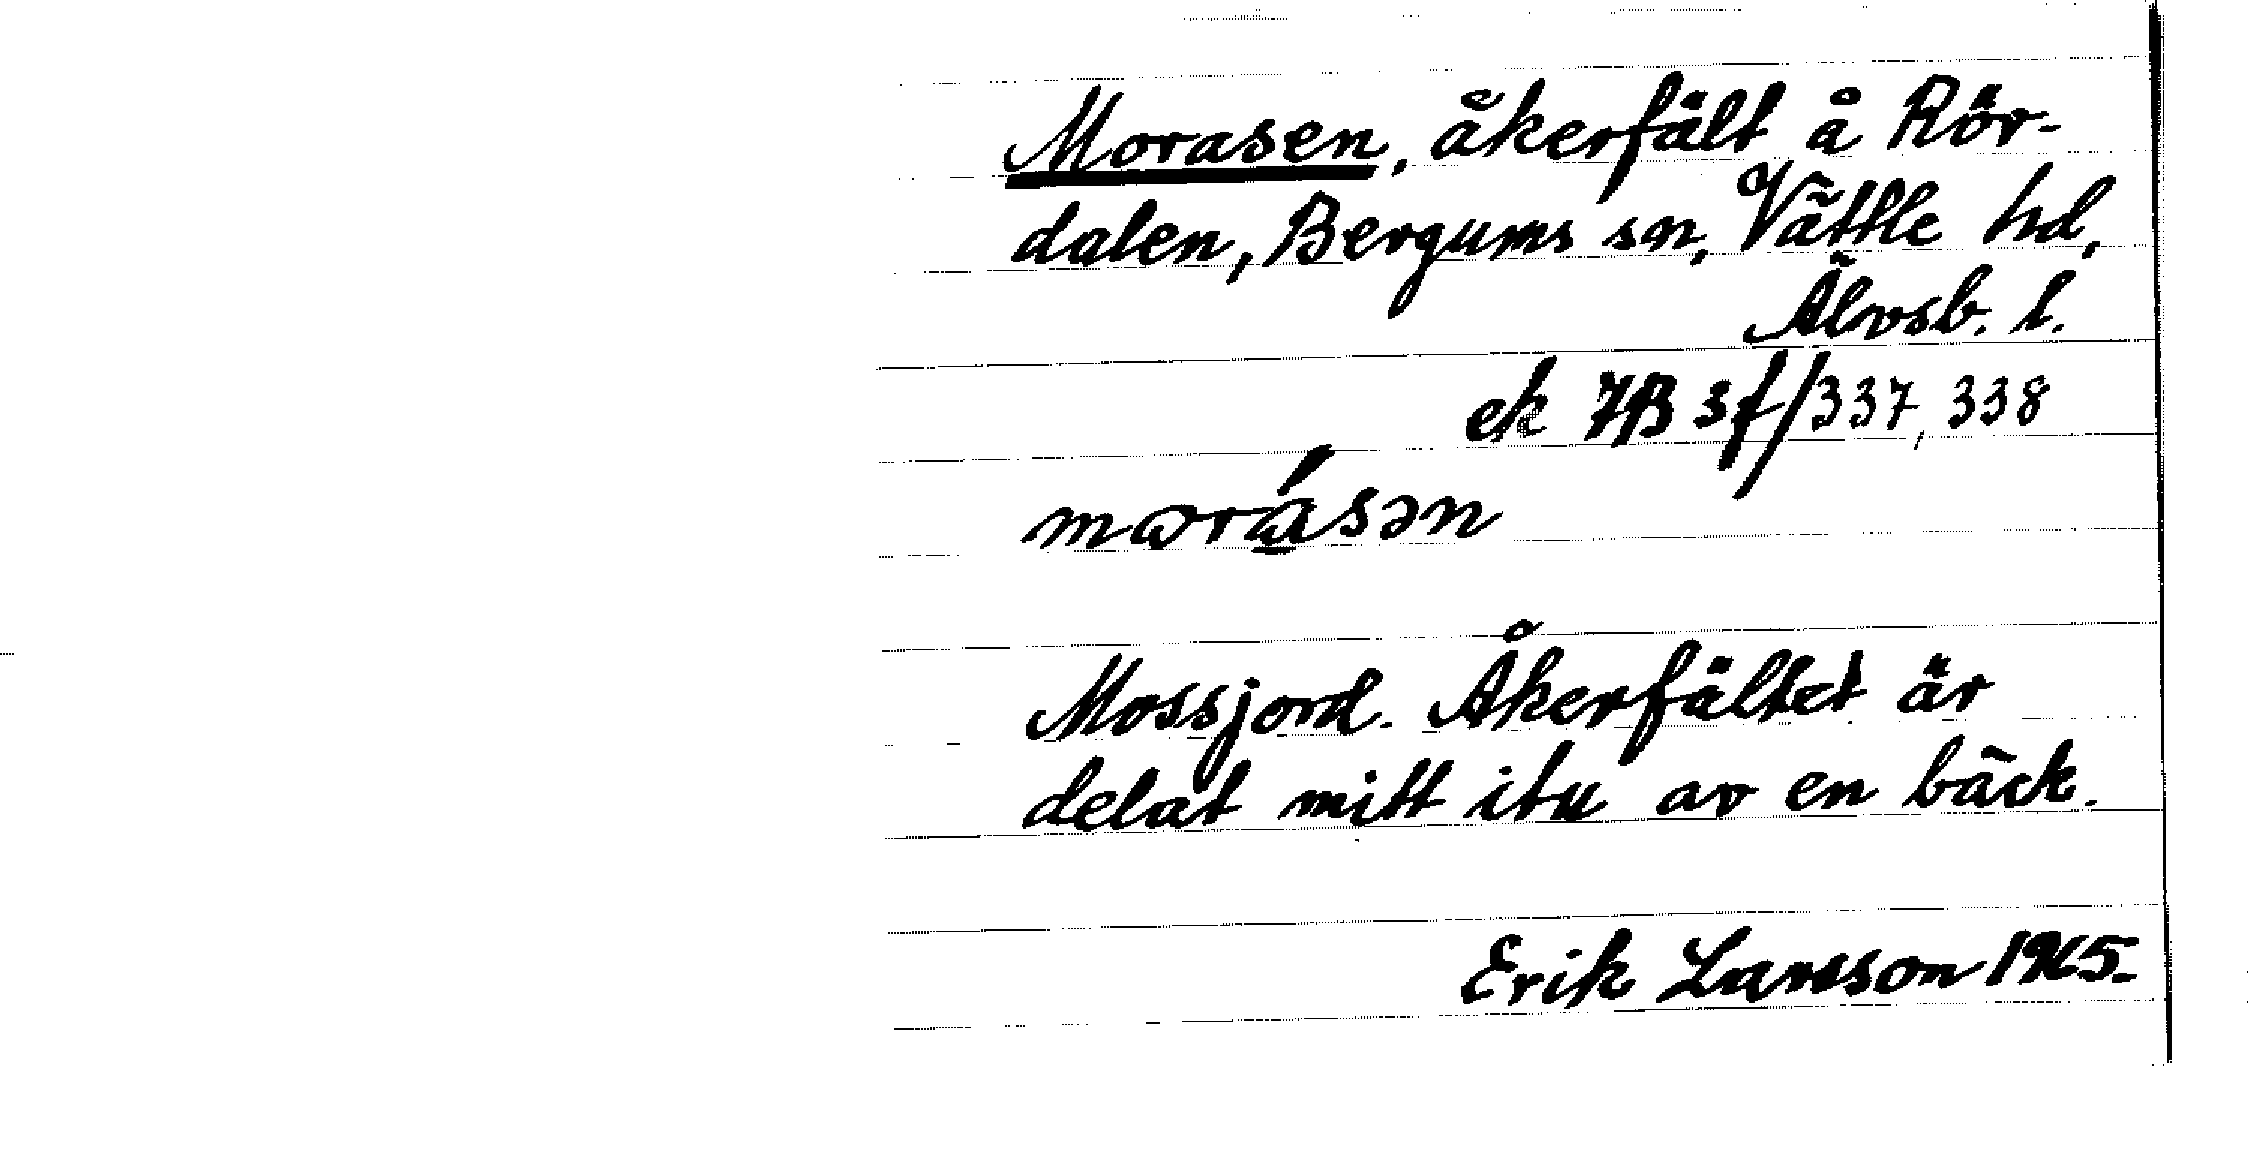 Morasen, åkerfält å Rör-
dalen, Bergums sn, Vättle hd,
Älvsb. l.
ek 7B 3f/337, 338
morásən
Mossjord. Åkerfältet är
delat mitt itu av en bäck.
Erik Larsson 1965.